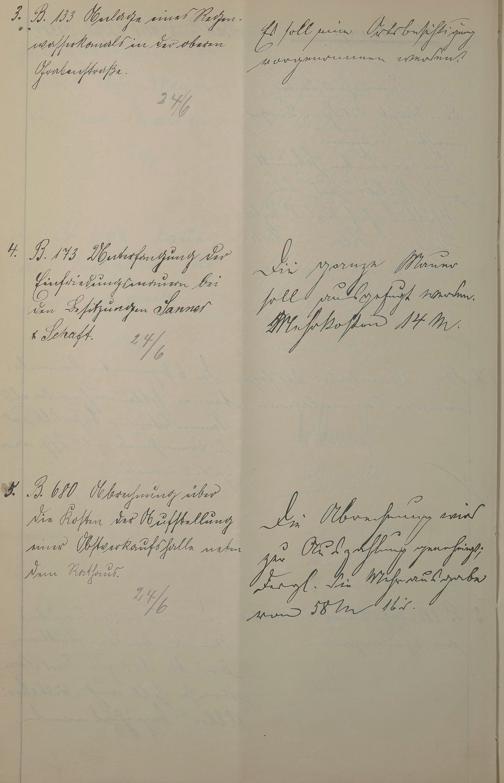 3. B. 133 Anlage eines Regen-
wasserkanals in der oberen
Grabenstraße.
24/6
Es soll eine Ortsbesichtigung
vorgenommen werden.
4. B. 173 Unterfangung der
Einfriedungsmauern bei
den Besitzungen Sanner
& Schaft.
24/6
Die ganze Mauer
soll ausgefugt werden.
Mehrkosten 14 M.
5. B. 680 Abrechnung über
die Kosten der Aufstellung
einer Obstverkaufshalle neben
dem Rathaus.
24/6
Die Abrechnung wird
zur Auszahlung genehmigt.
Dergl. die Mehrausgabe
von 58 M 16